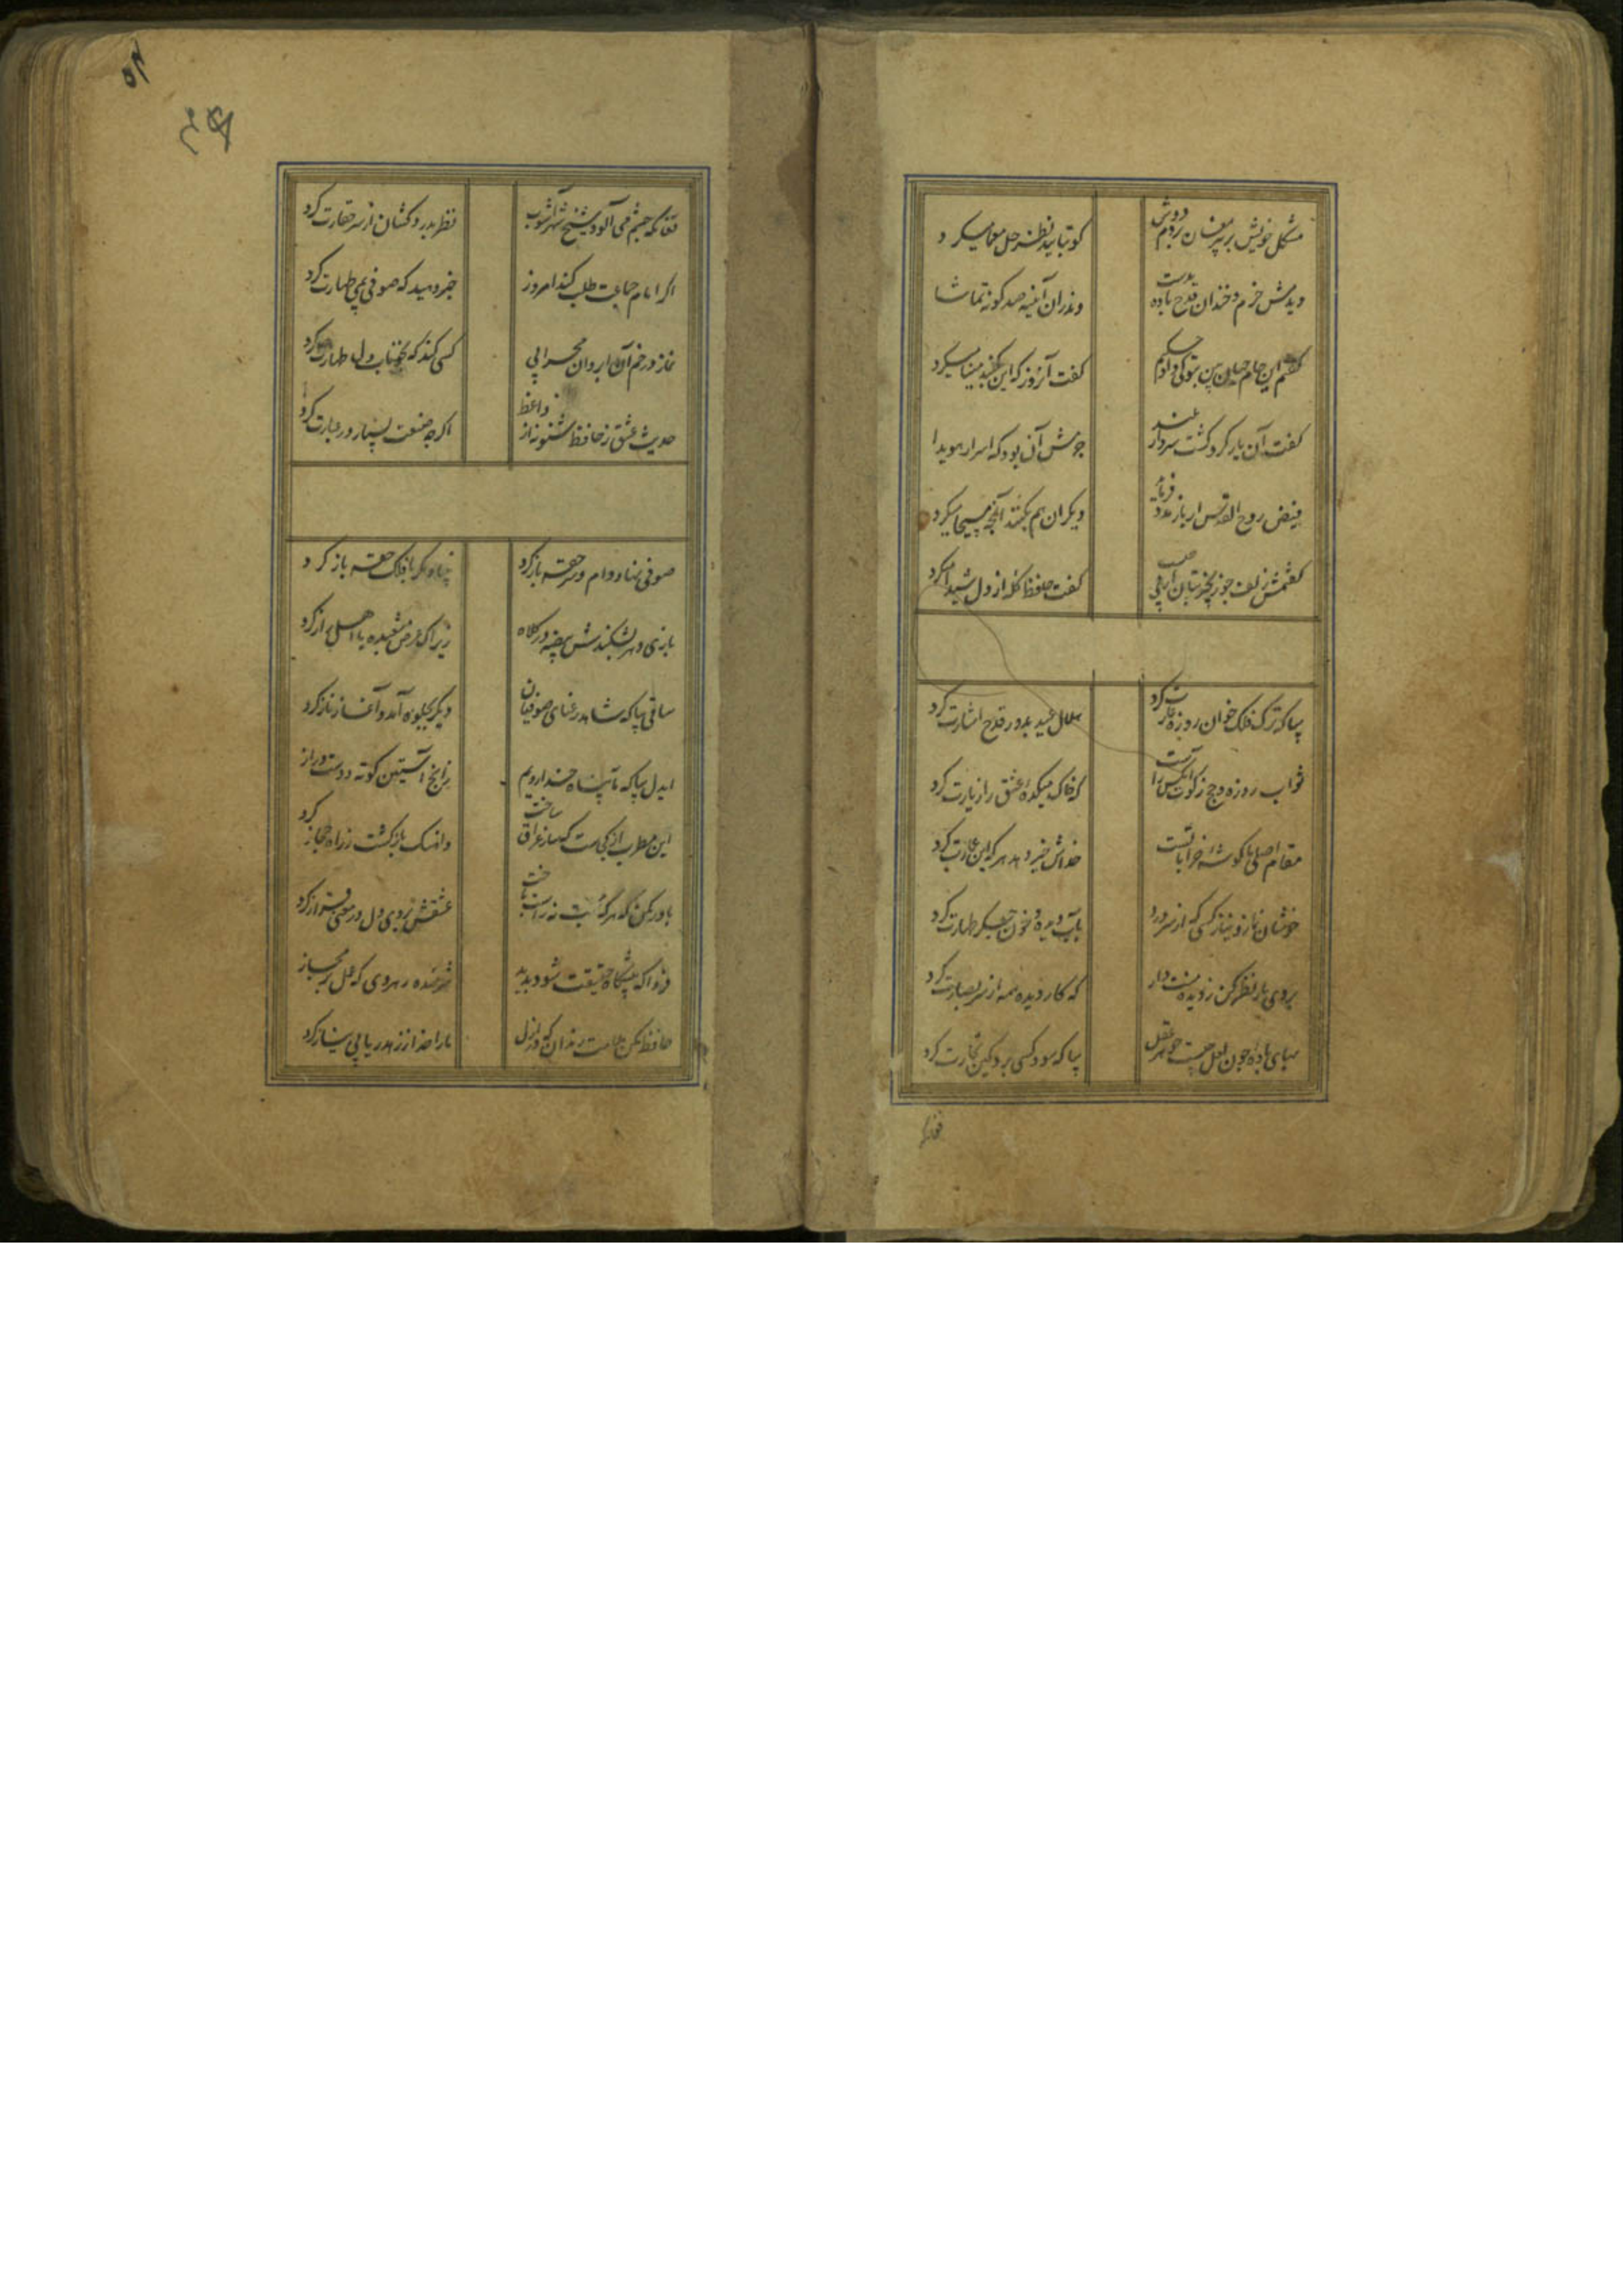 مشکل خویش بر پیر مغان بردم دوش
کو بتایید نظر حل معما میکرد
دیدمش خرم و خندان قدح باده بدست
وندران آینه صد کونه تماشا
کفتم این جام جهان بین بتو کی داد حکیم
کفت آنروز که این کنبد مینا میکرد
کفت آن یار کزو کشت سردار بلند
جرمش آن بود که اسرار هویدا
فیض روح القدس ار باز مدد فرماید
دیکران هم بکنند آنچه مسیحا میکرد
کفتمش زلف چو زنجیر بتان از پی چیست
کفت حافظ کله از دل شیدا میکرد
بیا که ترک فلک خوان روزه غارت کرد
هلال عید بدور قدح اشارت کرد
ثواب روزه و حج آنکس
که خاک میکده عشق را زیارت کرد
مقام اصلی ما کوشه خراباتست
خداش خیر دهد هر که این عمارت کرد
خوشا نماز و نیاز کسی که از سر درد
بآب دیده و خون جکر طهارت کرد
بروی یار نظر کن ز دیده منت دار
که کار دیده همه از سر بصارت کرد
بهای باده چون لعل چیست جوهر عقل
بیا که سود کسی برد کین تجارت کرد
فغانکه
۵۴
فغانکه چشم می آلود شیخ شهر آشوب
نظر بدردکشان از سر حقارت کرد
اکر امام جماعت طلب کند امروز
خبر دهید که صوفی بمی طهارت کرد
نماز در خم آن ابروان محرابی
کسی کند که بخوناب دل طهارت کرد
حدیث عشق ز حافظ شنو نه از واعظ
اکرچه صنعت بسیار در عبارت کرد
صوفی نهاد دام و سر حقه باز کرد
بنیاد مکر با فلک حقه باز کرد
بازی دهر بشکندش بیضه در کلاه
زیرا که عرض شعبده با اهل راز کرد
ساقی بیا که شاهد رعنای صوفیان
دیکر بجلوه آمد و آغاز ناز کرد
ایدل بیا که ما بپناه خدا رویم
زانچ آستین کوته و دست دراز کرد
این مطرب از کجاست که ساز عراق ساخت
واهنک بازکشت ز راه حجاز
باور مکن که هرکه نه راست باخت
عشقش بروی دل در معنی فراز کرد
فردا که پیشکاه حقیقت شود پدید
شرمنده رهروی که عمل بر مجاز
حافظ مکن ملامت رندان که در ازل
ما را خدا ز زهد ریایی بی نیاز کرد